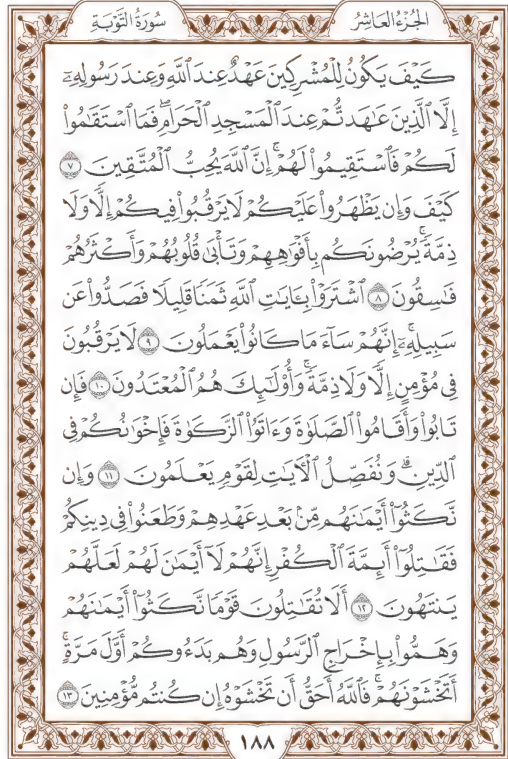 الجُزْءُ العَاشِرُ
سُورَةُ التَّوْبَةِ
كَيْفَ يَكُونُ لِلْمُشْرِكِينَ عَهْدٌ عِندَ ٱللَّهِ وَعِندَ رَسُولِهِۦٓ
إِلَّا ٱلَّذِينَ عَٰهَدتُّمْ عِندَ ٱلْمَسْجِدِ ٱلْحَرَامِۖ فَمَا ٱسْتَقَٰمُوا۟
لَكُمْ فَٱسْتَقِيمُوا۟ لَهُمْۚ إِنَّ ٱللَّهَ يُحِبُّ ٱلْمُتَّقِينَ ٧
كَيْفَ وَإِن يَظْهَرُوا۟ عَلَيْكُمْ لَا يَرْقُبُوا۟ فِيكُمْ إِلًّا وَلَا
ذِمَّةًۚ يُرْضُونَكُم بِأَفْوَٰهِهِمْ وَتَأْبَىٰ قُلُوبُهُمْ وَأَكْثَرُهُمْ
فَٰسِقُونَ ٨ ٱشْتَرَوْا۟ بِـَٔايَٰتِ ٱللَّهِ ثَمَنًا قَلِيلًا فَصَدُّوا۟ عَن
سَبِيلِهِۦٓۚ إِنَّهُمْ سَآءَ مَا كَانُوا۟ يَعْمَلُونَ ٩ لَا يَرْقُبُونَ
فِى مُؤْمِنٍ إِلًّا وَلَا ذِمَّةًۚ وَأُو۟لَٰٓئِكَ هُمُ ٱلْمُعْتَدُونَ ١٠ فَإِن
تَابُوا۟ وَأَقَامُوا۟ ٱلصَّلَوٰةَ وَءَاتَوُا۟ ٱلزَّكَوٰةَ فَإِخْوَٰنُكُمْ فِى
ٱلدِّينِۗ وَنُفَصِّلُ ٱلْءَايَٰتِ لِقَوْمٍ يَعْلَمُونَ ١١ وَإِن
نَّكَثُوٓا۟ أَيْمَٰنَهُم مِّنۢ بَعْدِ عَهْدِهِمْ وَطَعَنُوا۟ فِى دِينِكُمْ
فَقَٰتِلُوٓا۟ أَئِمَّةَ ٱلْكُفْرِۙ إِنَّهُمْ لَآ أَيْمَٰنَ لَهُمْ لَعَلَّهُمْ
يَنتَهُونَ ١٢ أَلَا تُقَٰتِلُونَ قَوْمًا نَّكَثُوٓا۟ أَيْمَٰنَهُمْ
وَهَمُّوا۟ بِإِخْرَاجِ ٱلرَّسُولِ وَهُم بَدَءُوكُمْ أَوَّلَ مَرَّةٍۚ
أَتَخْشَوْنَهُمْۚ فَٱللَّهُ أَحَقُّ أَن تَخْشَوْهُ إِن كُنتُم مُّؤْمِنِينَ ١٣
١٨٨